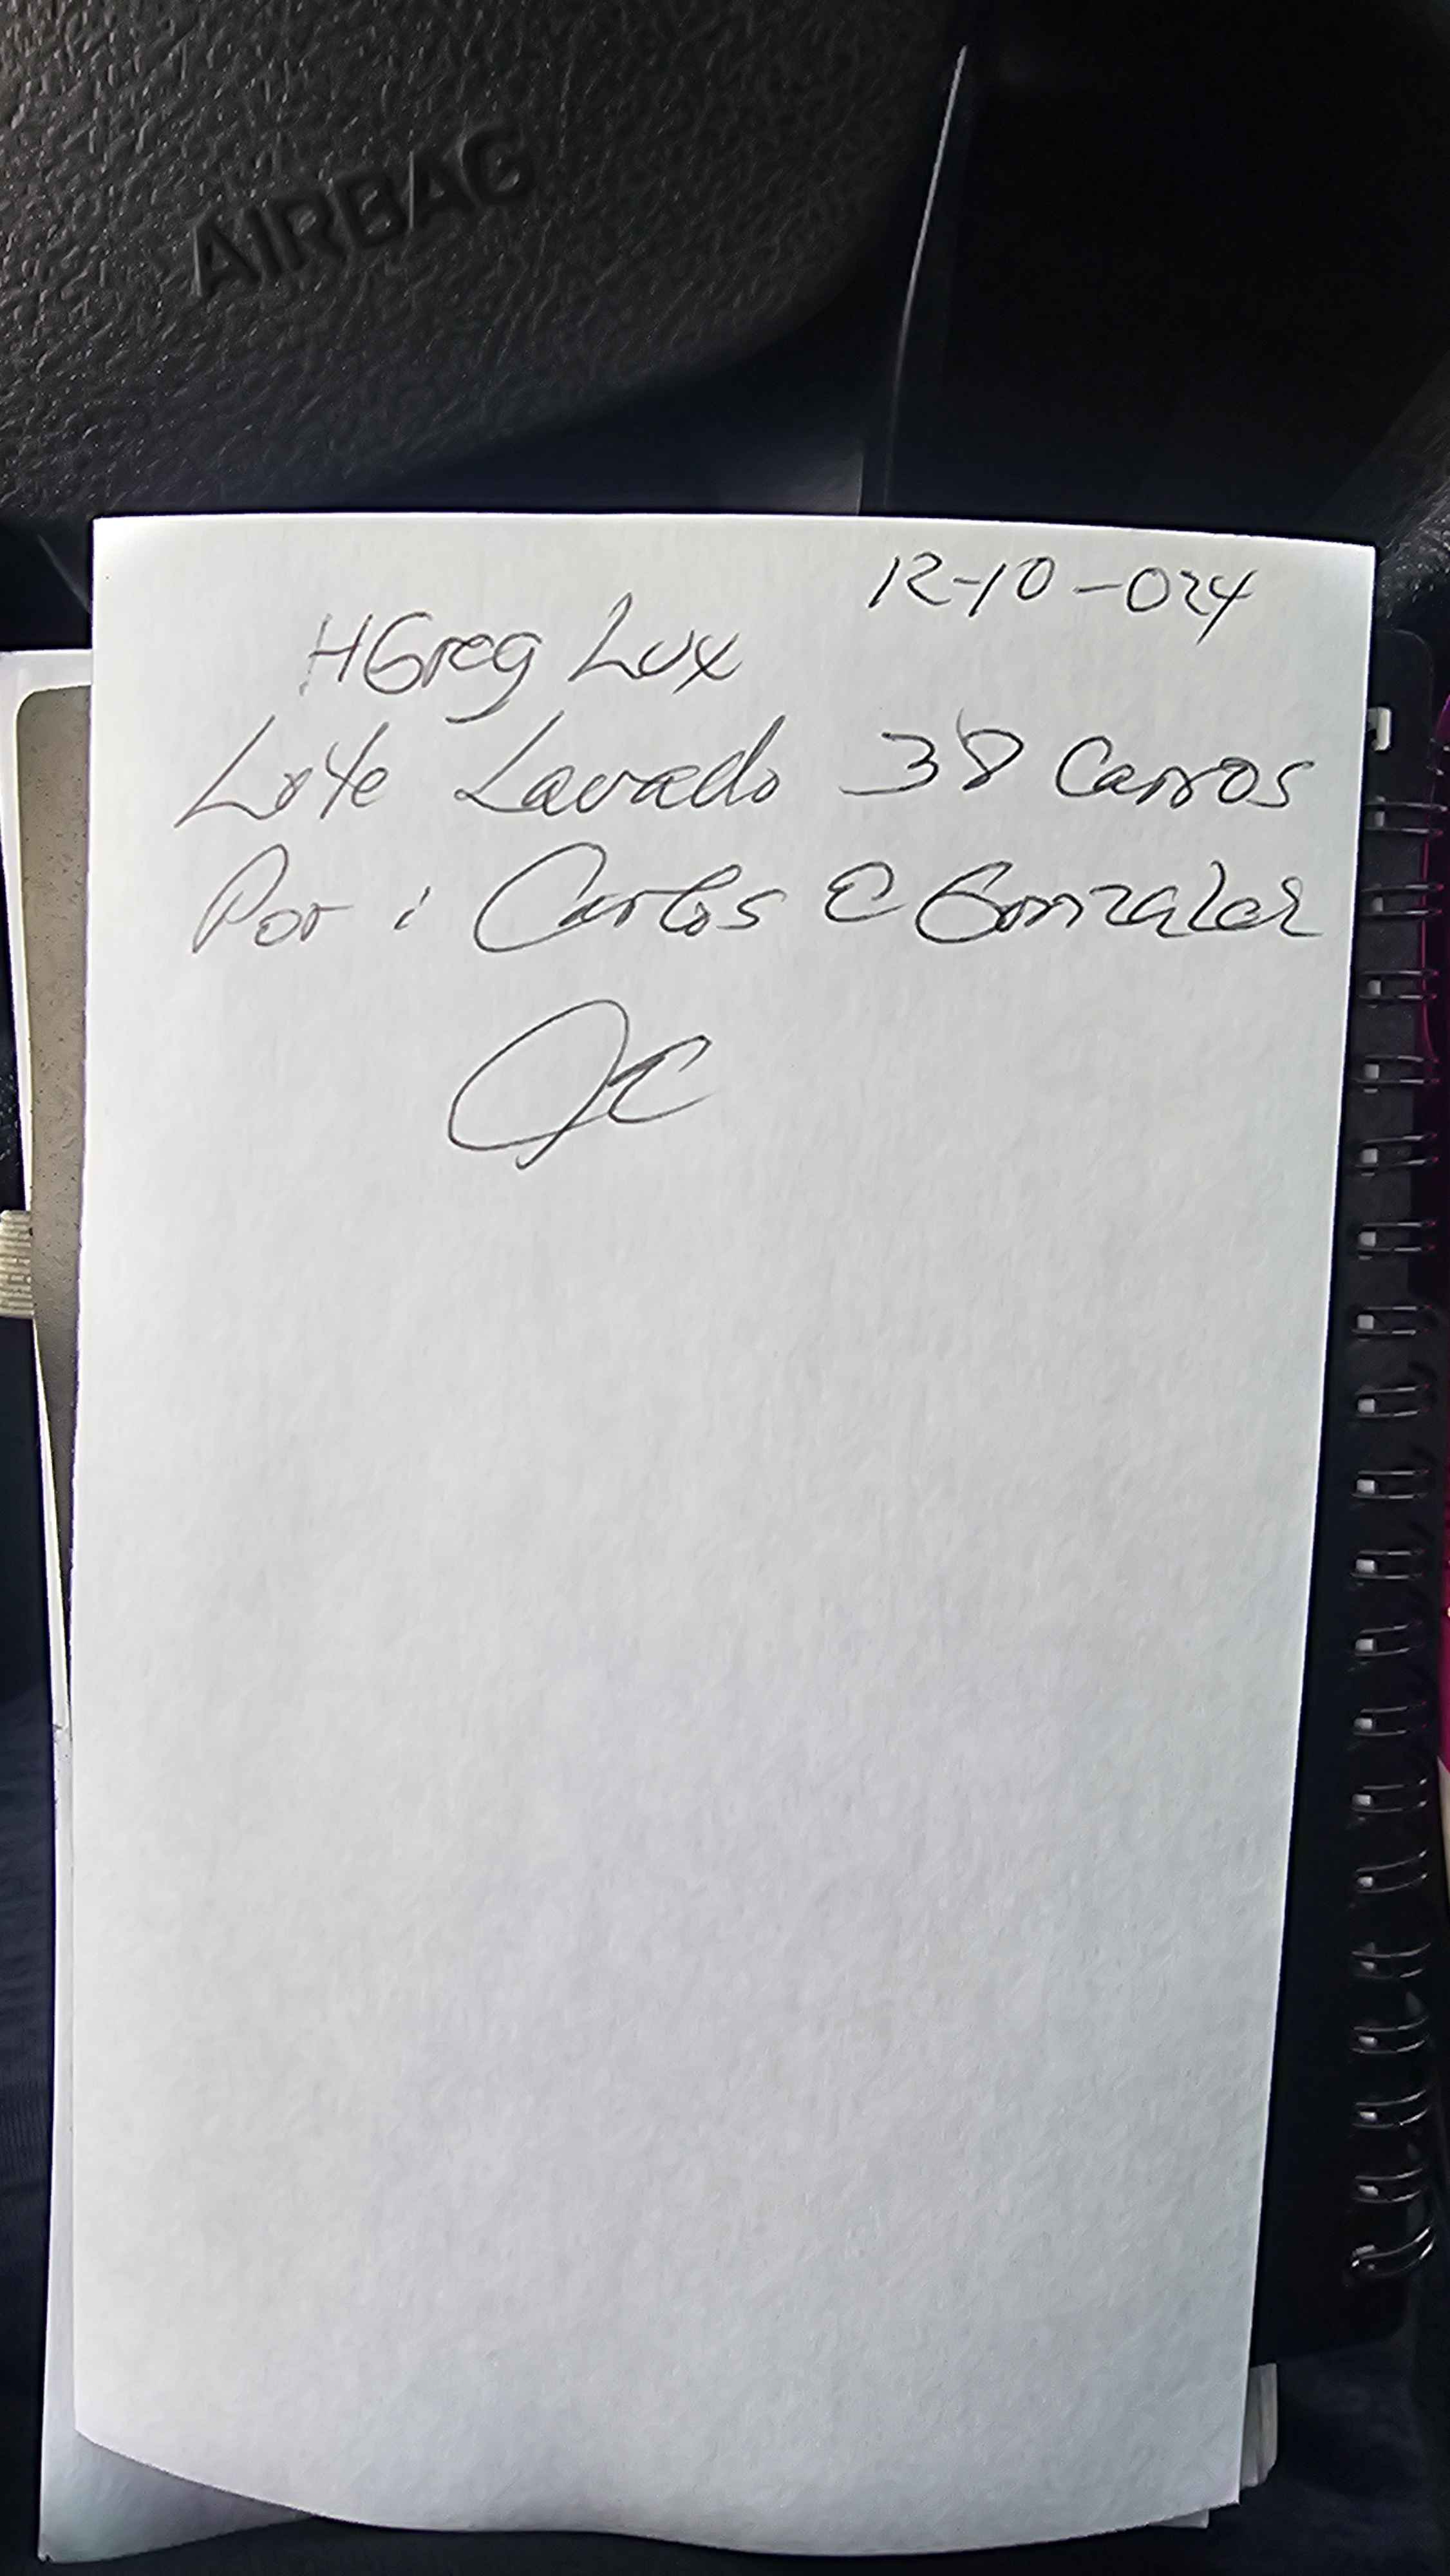 AIRBAG
12-10-024
HGreg Lux
Lote Lavado 38 Carros
Por: Carlos E Gonzalez